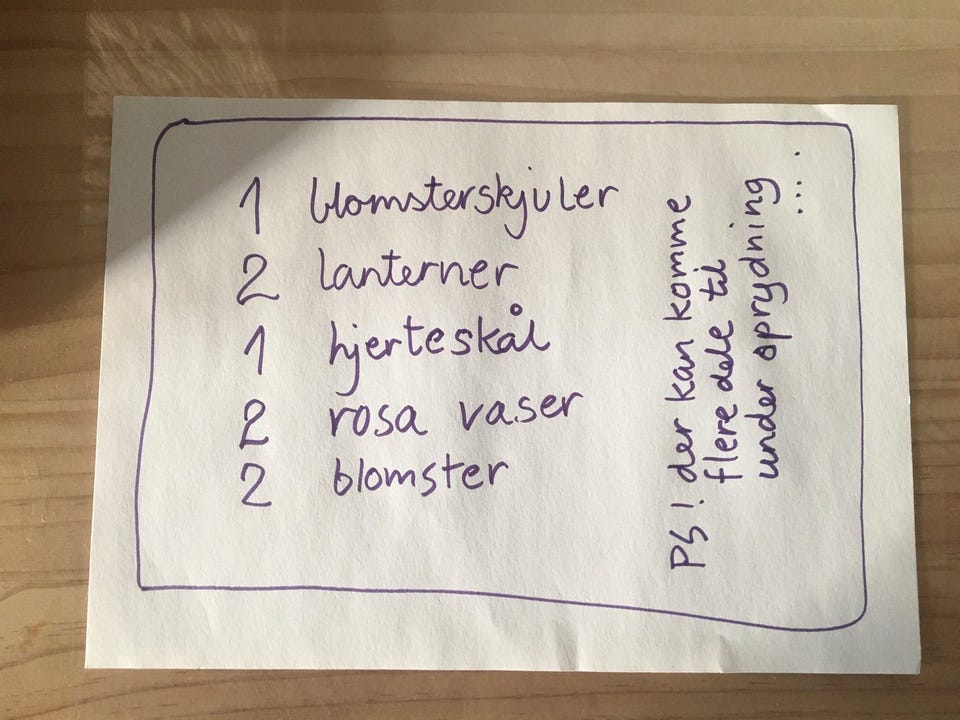 1 blomsterskjuler
2 lanterner
1 hjerteskål
2 rosa vaser
2 blomster
PS! der kan komme
flere dele til
under oprydning
...